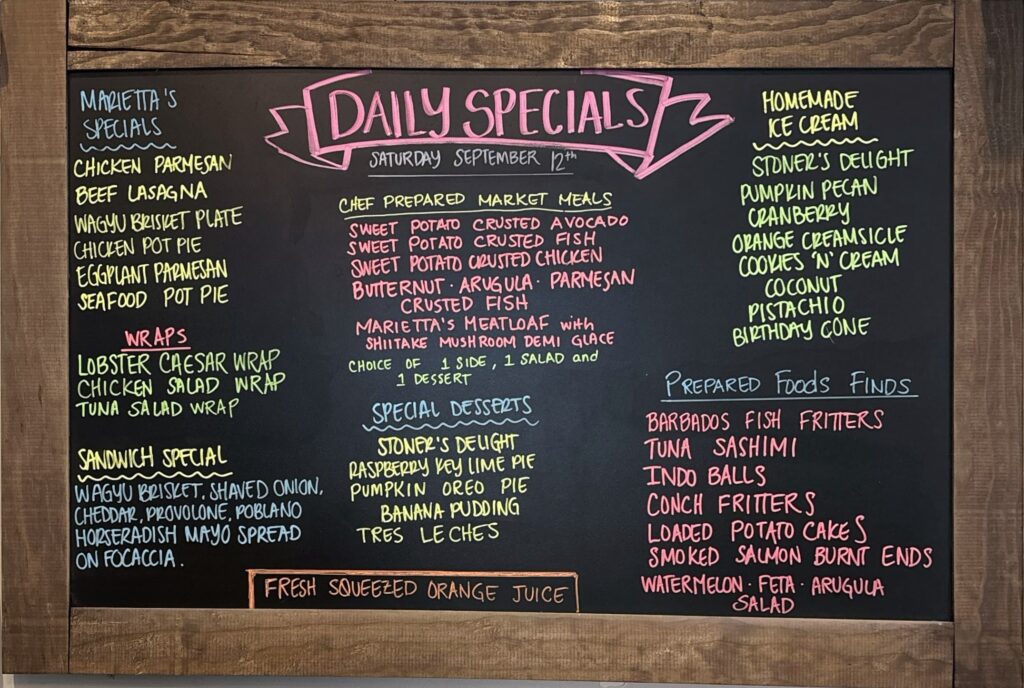 DAILY SPECIALS
SATURDAY SEPTEMBER 12th
MARIETTA'S
SPECIALS
CHICKEN PARMESAN
BEEF LASAGNA
WAGYU BRISKET PLATE
CHICKEN POT PIE
EGGPLANT PARMESAN
SEAFOOD POT PIE
WRAPS
LOBSTER CAESAR WRAP
CHICKEN SALAD WRAP
TUNA SALAD WRAP
SANDWICH SPECIAL
WAGYU BRISKET, SHAVED ONION,
CHEDDAR, PROVOLONE, POBLANO
HORSERADISH MAYO SPREAD
ON FOCACCIA.
CHEF PREPARED MARKET MEALS
SWEET POTATO CRUSTED AVOCADO
SWEET POTATO CRUSTED FISH
SWEET POTATO CRUSTED CHICKEN
BUTTERNUT · ARUGULA · PARMESAN
CRUSTED FISH
MARIETTA'S MEATLOAF with
SHIITAKE MUSHROOM DEMI GLACE
CHOICE OF 1 SIDE, 1 SALAD and
1 DESSERT
SPECIAL DESSERTS
STONER'S DELIGHT
RASPBERRY KEY LIME PIE
PUMPKIN OREO PIE
BANANA PUDDING
TRES LECHES
FRESH SQUEEZED ORANGE JUICE
HOMEMADE
ICE CREAM
STONER'S DELIGHT
PUMPKIN PECAN
CRANBERRY
ORANGE CREAMSICLE
COOKIES 'N' CREAM
COCONUT
PISTACHIO
BIRTHDAY CONE
PREPARED FOODS FINDS
BARBADOS FISH FRITTERS
TUNA SASHIMI
INDO BALLS
CONCH FRITTERS
LOADED POTATO CAKES
SMOKED SALMON BURNT ENDS
WATERMELON · FETA · ARUGULA
SALAD